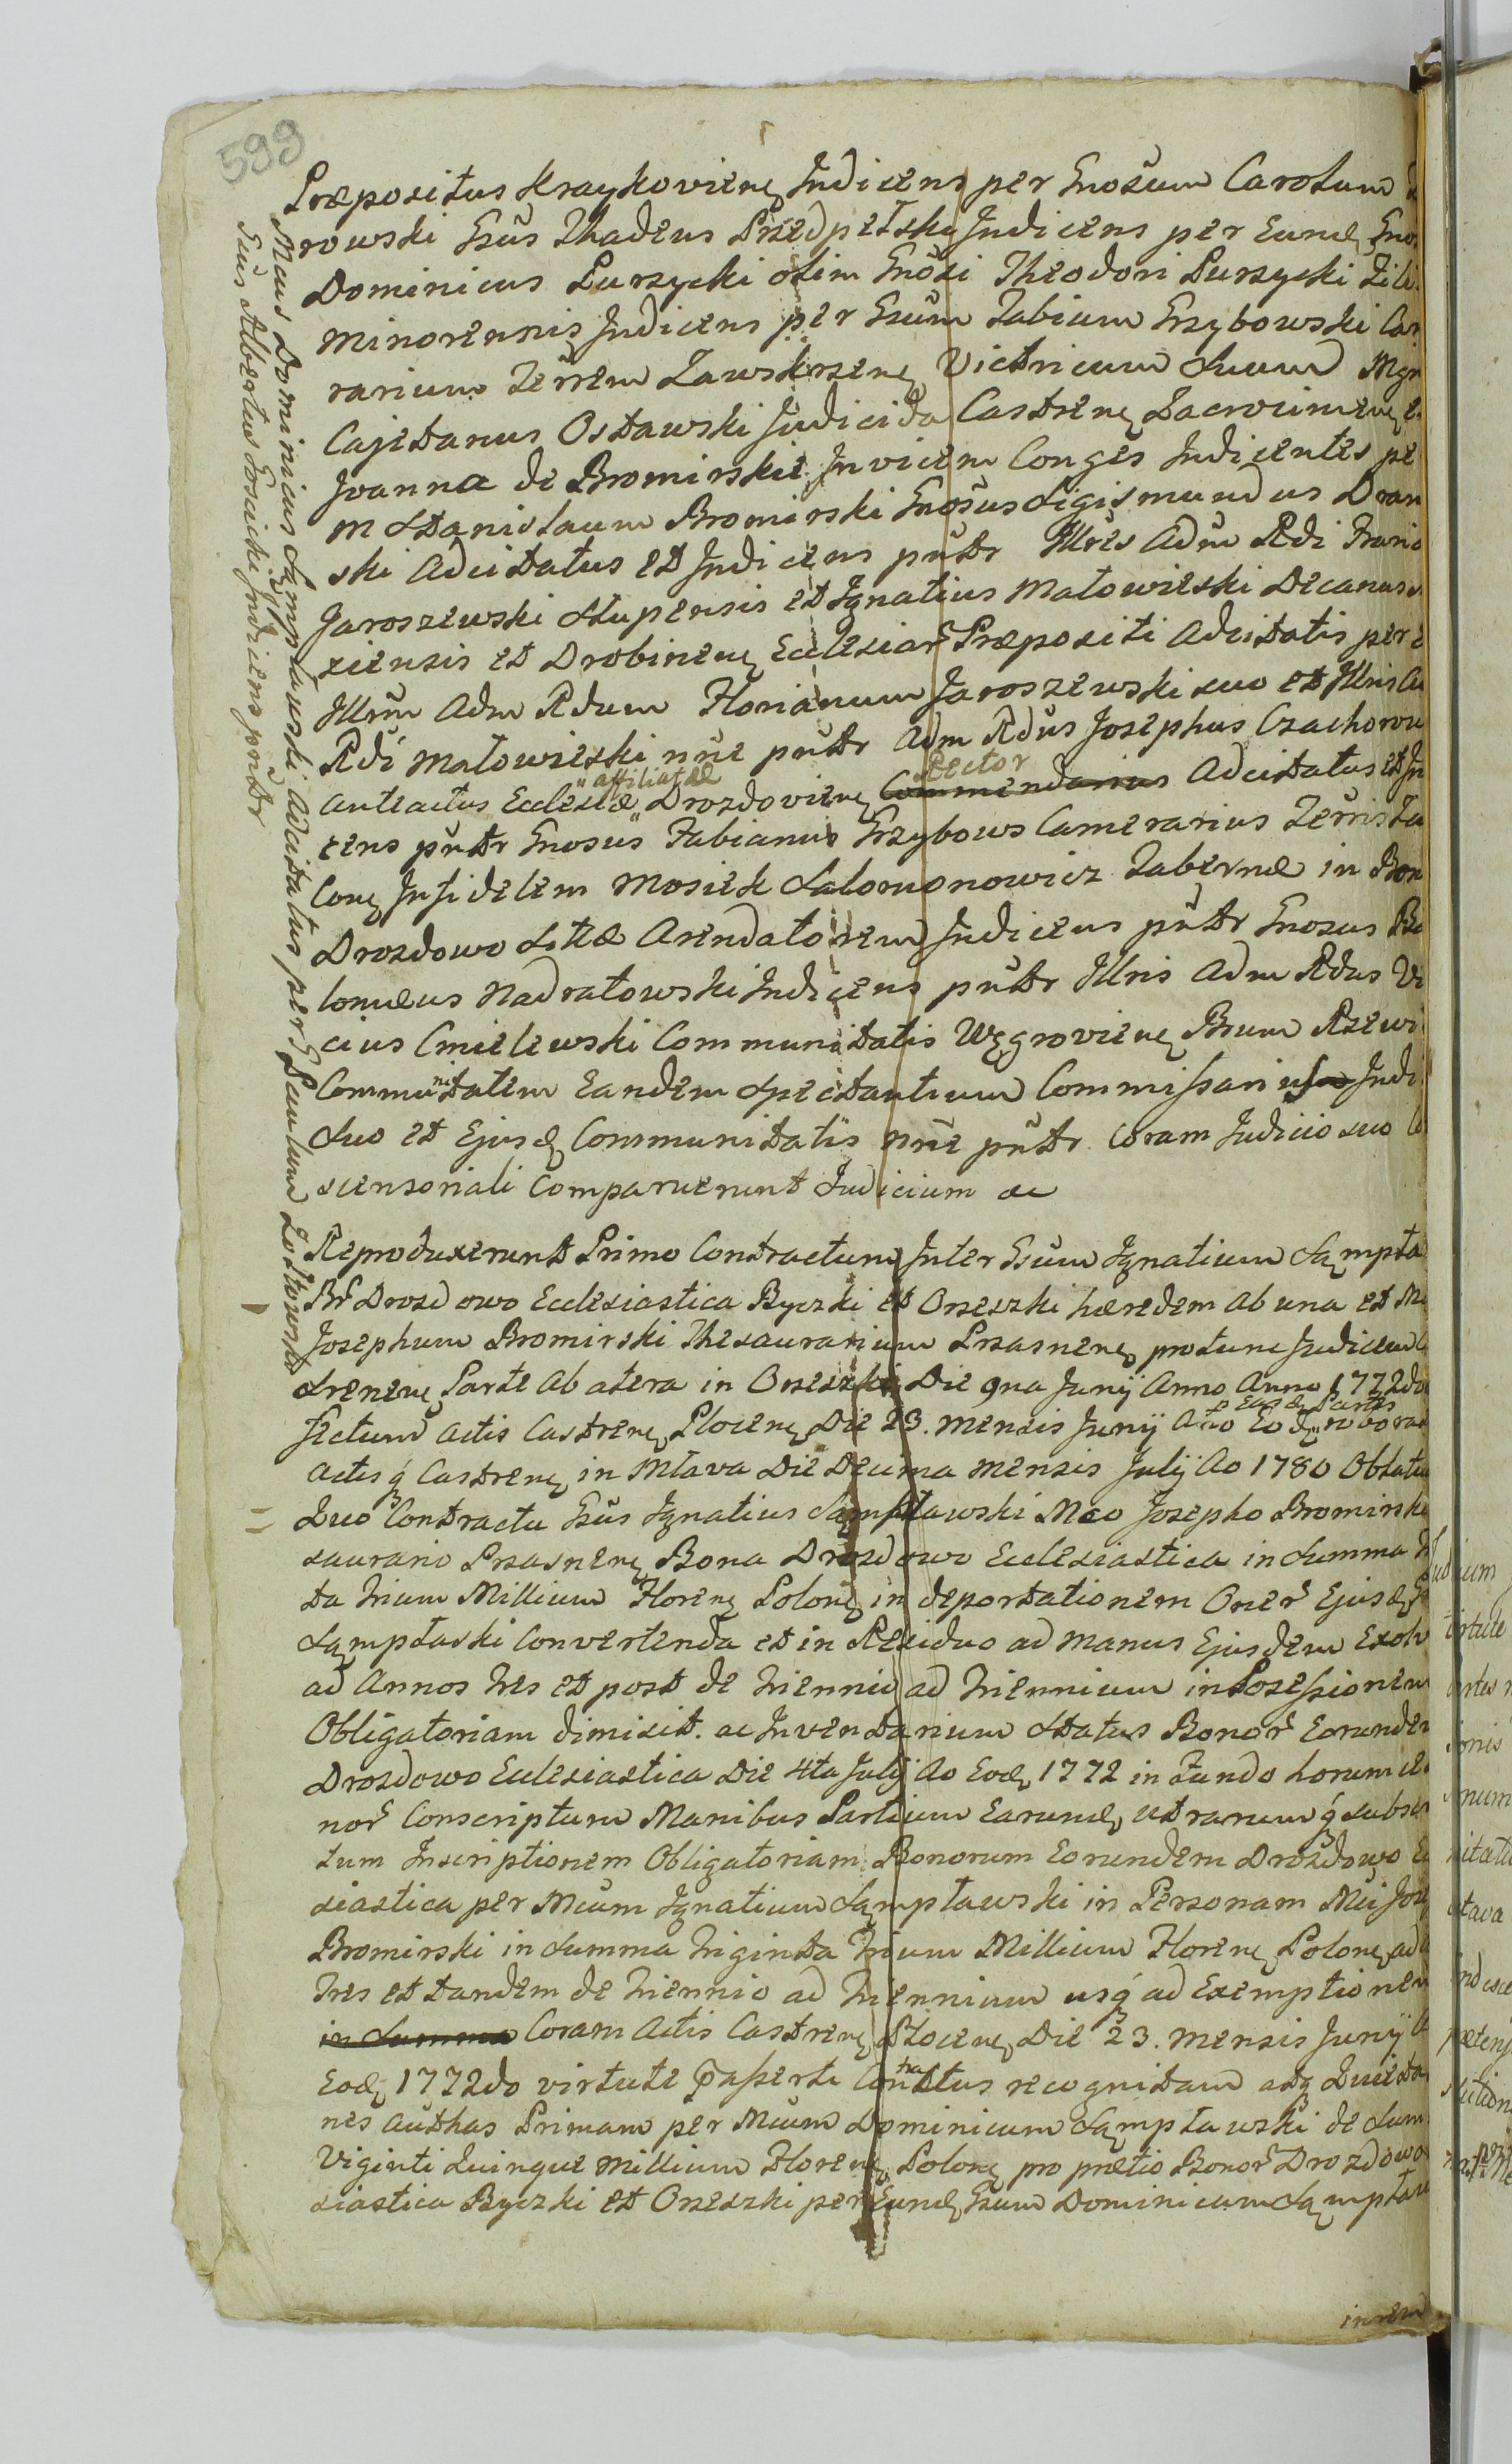 599
Præpositus Kraykoviens Indicens per Gnosum Carolum
rowski Gsus Thadeus Przedpełski Indicens per Eund Gno
Dominicus Purzycki olim Gnosi Theodori Purzycki Fili
Minorennis Indicens per Gsum Fabium Grzybowski Ca
rarium Terrem Zawskrzens Victricum Suum Mgn
Cajetanus Ostawski Judicida Castrens Zacrocimens e
Joanna de Bromirskie Invicem Conges Indicentes pe
M Stanislaum Bromirski Gnosus Sigismundus Dran
ski Adcitatus et Indicens pnttr Illres Adm Rdi Franc
Jaroszewski Slupensis et Ignatius Małowieski Decanus
siensis et Drobinens Ecclesiar Præpositi Adcitatis per
Illrm Adm Rdum Florianum Jaroszewski suo et Illris A
Rdi Małowieski nne pnttr Adm Rdus Josephus Czachorow
anteactus Ecclesiæ affiliatæ Drozdoviens Commendarius Rector Adcitatus et In
cens pnttr Gnosus Fabianus Grzybows Camerarius Terris Za
Cons Infidelem Mosiek Salomonowicz Tabernæ in Bon
Drozdowo Sitæ Arendatorem Indicens pnttr Gnosus B
lomeus Nadratowski Indicens pnttr Illris Adm Rdus V
cius Cmielewski Communitatis Węgroviens Bsum Rzewi
Communitatem Eandem Spectantium Commissarius Indi
Suo et Ejusd Communitatis nne pnttr Coram Judicio suo Co
scensoriali Comparuerunt Judicium ac
Reproduxerunt Primo Contractum Inter Gsum Ignatium Sąmpła
Br Drozdowo Ecclesiastica Byczki et Orszeszki hæredem ab una et M
Josephum Bromirski Thesaurarium Przasnens protunc Judicem
strenens Parte Ab atera in Orzeszki Die 9na Junij Anno Anno 1772do
fectum actis Castrens Plocens Die 23. Mensis Junij Ao Eod roborat
actis q Castrens in Mlava Die Decima Mensis Julij Ao 1780 Oblatu
Quo Contractu Gsus Ignatius Sąmpławski Mco Josepho Bromirsk
saurario Przasnens Bona Drozdowo Ecclesiastica in Summa
ta trium Millium Florens Polons in deportationem Oner Ejusd
Sąmpłaski Convertenda et in Residuo ad manus Ejusdem Exolv
ad Annos tres et post de triennio ad triennium in Possessionem
Obligatoriam dimisit. ac Inventarium Status Bonor Eorunde
Drozdowo Ecclesiastica Die 4ta Julij Ao Eod 1772 in Fundo horum
nor Conscriptum Manibus Partium Earund utrarum q subsc
tum Inscriptionem Obligatoriam Bonorum Eorundem Drozdowo E
siastica per Mcum Ignatium Sąmpławski in Personam Mci Jos
Bromirski in Summa triginta trium Millium Florens Polons ad
tres et tandem de triennio ad triennium usq ad Exemptionem
in Summa Coram Actis Castrens Plocens Die 23. Mensis Junij
Eod 1772do virtute passerti Contractus recognitam atq Quieta
nes authas Primam per Mcum Dominicum Sąmpławski de Sum
Viginti Quinque Millium Florens Polons pro prætio Bonor Drozdowo
siastica Byczki et Orzeszki per Eund Gsum Dominicum Sąmpław
Mcus Dominicus Sąmpławski Adcitatus per G Paulum
Gsus Albertus Gosicki Indicens pnttr